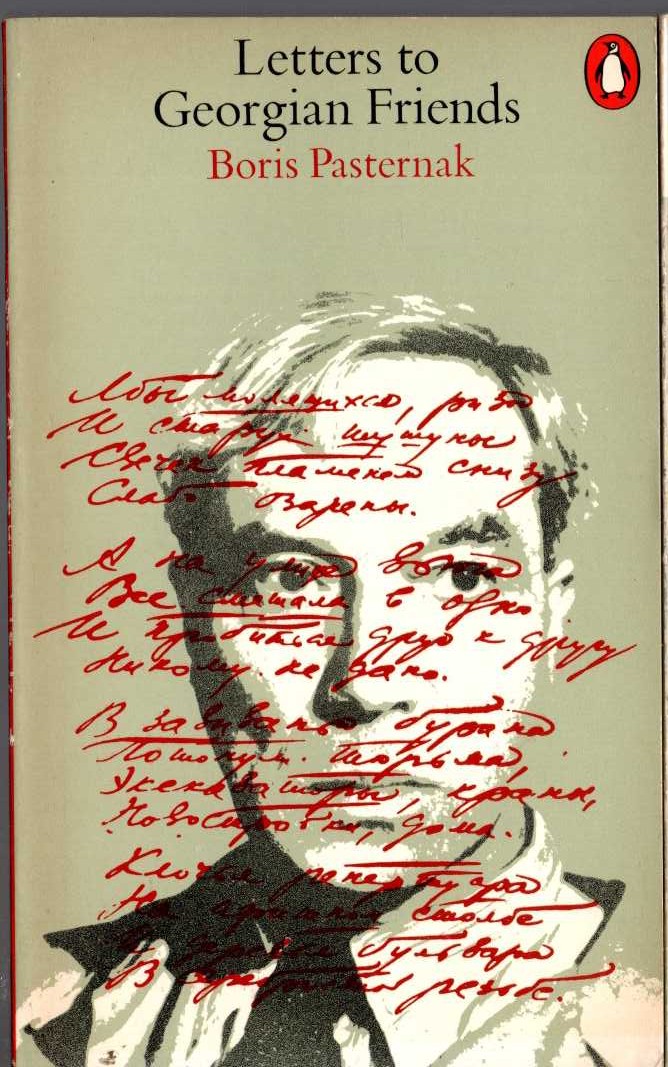 Letters to
Georgian Friends
Boris Pasternak
Лбы молящихся, ризы
И старух шушуны
Свечек пламенем снизу
Слабо озарены.
А на улице вьюга
Все смешала в одно
И пробиться друг к другу
Никому не дано.
В завываньи бурана
Потонули: тюрьма,
Экскаваторы, краны,
Новостройки, дома.
Клочья репертуара
На афишном столбе
И деревья бульвара
В серебристой резьбе.